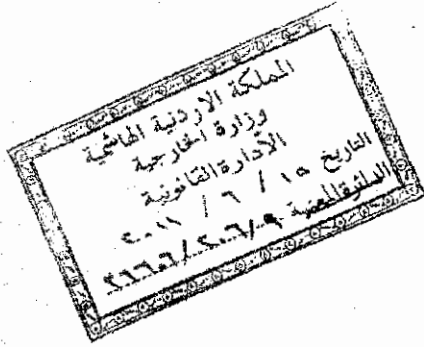 المملكة الاردنية الهاشمية
وزارة الخارجية
الأدارة القانونية
التاريخ ١٥ / ٦ / ٢٠١١